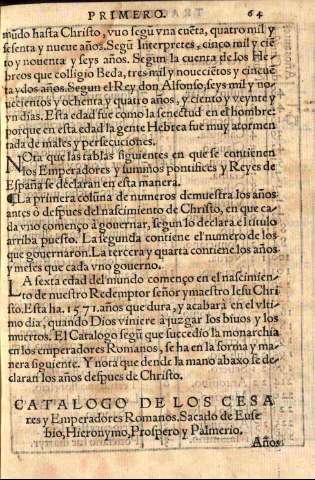 PRIMERO. 64
mũdo hasta Christo, vuo segũ vna cuẽta, quatro mil y
sesenta y nueue años. Segũ Interpretes, cinco mil y ciẽ
to y nouenta y seys años. Segun la cuenta de los He-
breos que colligio Beda, tres mil y nouecietos y cincuẽ
ta y dos años. Segun el Rey don Alfonso, seys mil y no-
uecientos y ochenta y quatro años, y ciento y veynte y
vn dias. Esta edad fue como la senectud en el hombre:
porque en esta edad la gente Hebrea fue muy atormen
tada de males y persecuciones.
NOta que las tablas siguientes en que se contienen
los Emperadores y summos pontifices y Reyes de
España se declaran en esta manera.
¶La primera colũna de numeros demuestra los años
antes ò despues del nascimiento de Christo, en que ca-
da vno començo à gouernar, segun lo declara el titulo
arriba puesto. La segunda contiene el numero de los
que gouernaron. La tercera y quarta contiene los años
y meses que cada vno gouerno.
LA sexta edad del mundo començo en el nascimien-
to de nuestro Redemptor señor y maestro Iesu Chri
sto. Esta ha. 1571. años que dura, y acabarà en el vlti
mo dia, quando Dios viniere à juzgar los biuos y los
muertos. El Catalogo segũ que succedio la monarchia
en los emperadores Romanos, se ha en la forma y ma-
nera siguiente. Y nota que dende la mano abaxo se de-
claran los años despues de Christo.
CATALOGO DE LOS CESA
res y Emperadores Romanos. Sacado de Euse
bio, Hieronymo, Prospero y Palmerio.
Años